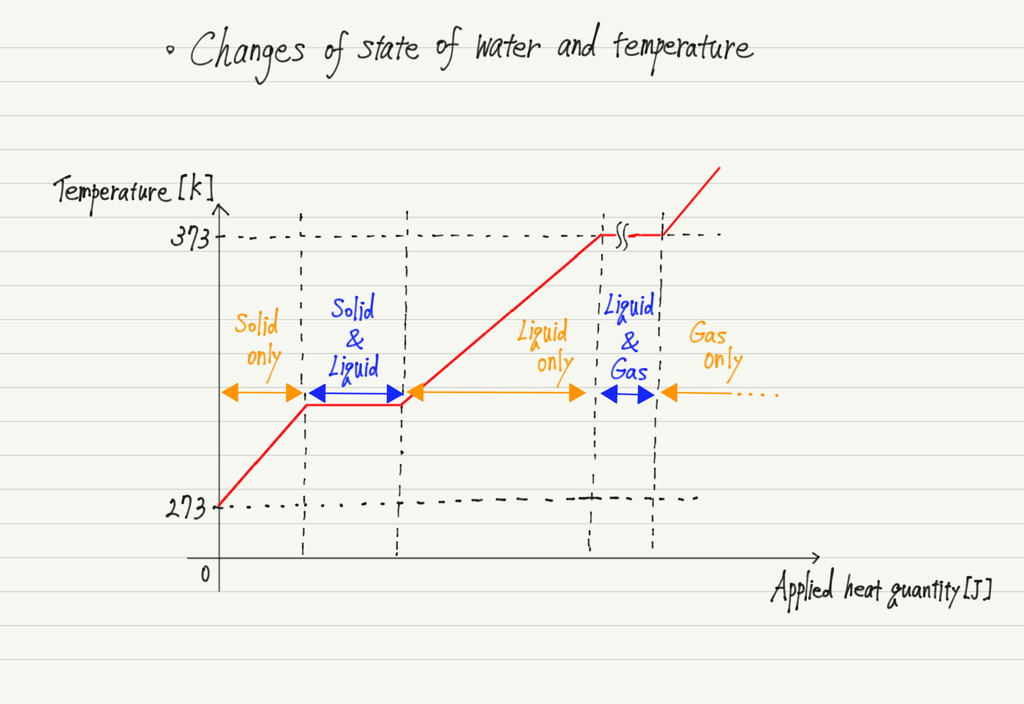 • Changes of state of water and temperature
Temperature [K]
373
Solid
only
Solid
&
Liquid
Liquid
only
Liquid
&
Gas
Gas
only
273
0
Applied heat quantity [J]